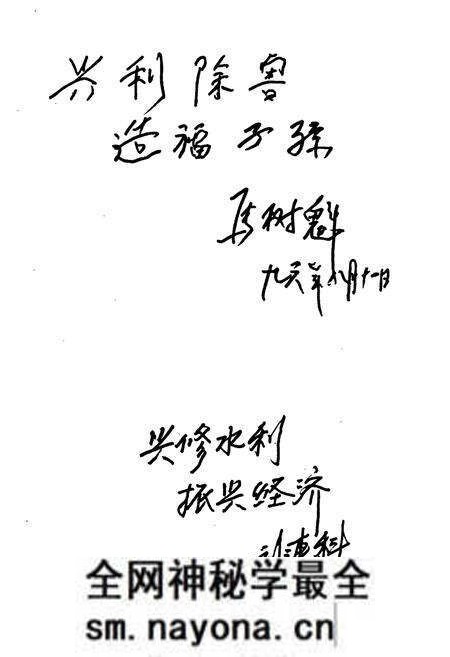 兴利除害
造福子孙
马树魁
九六年八月十一日
兴修水利
振兴经济
全网神秘学最全
sm.nayona.cn